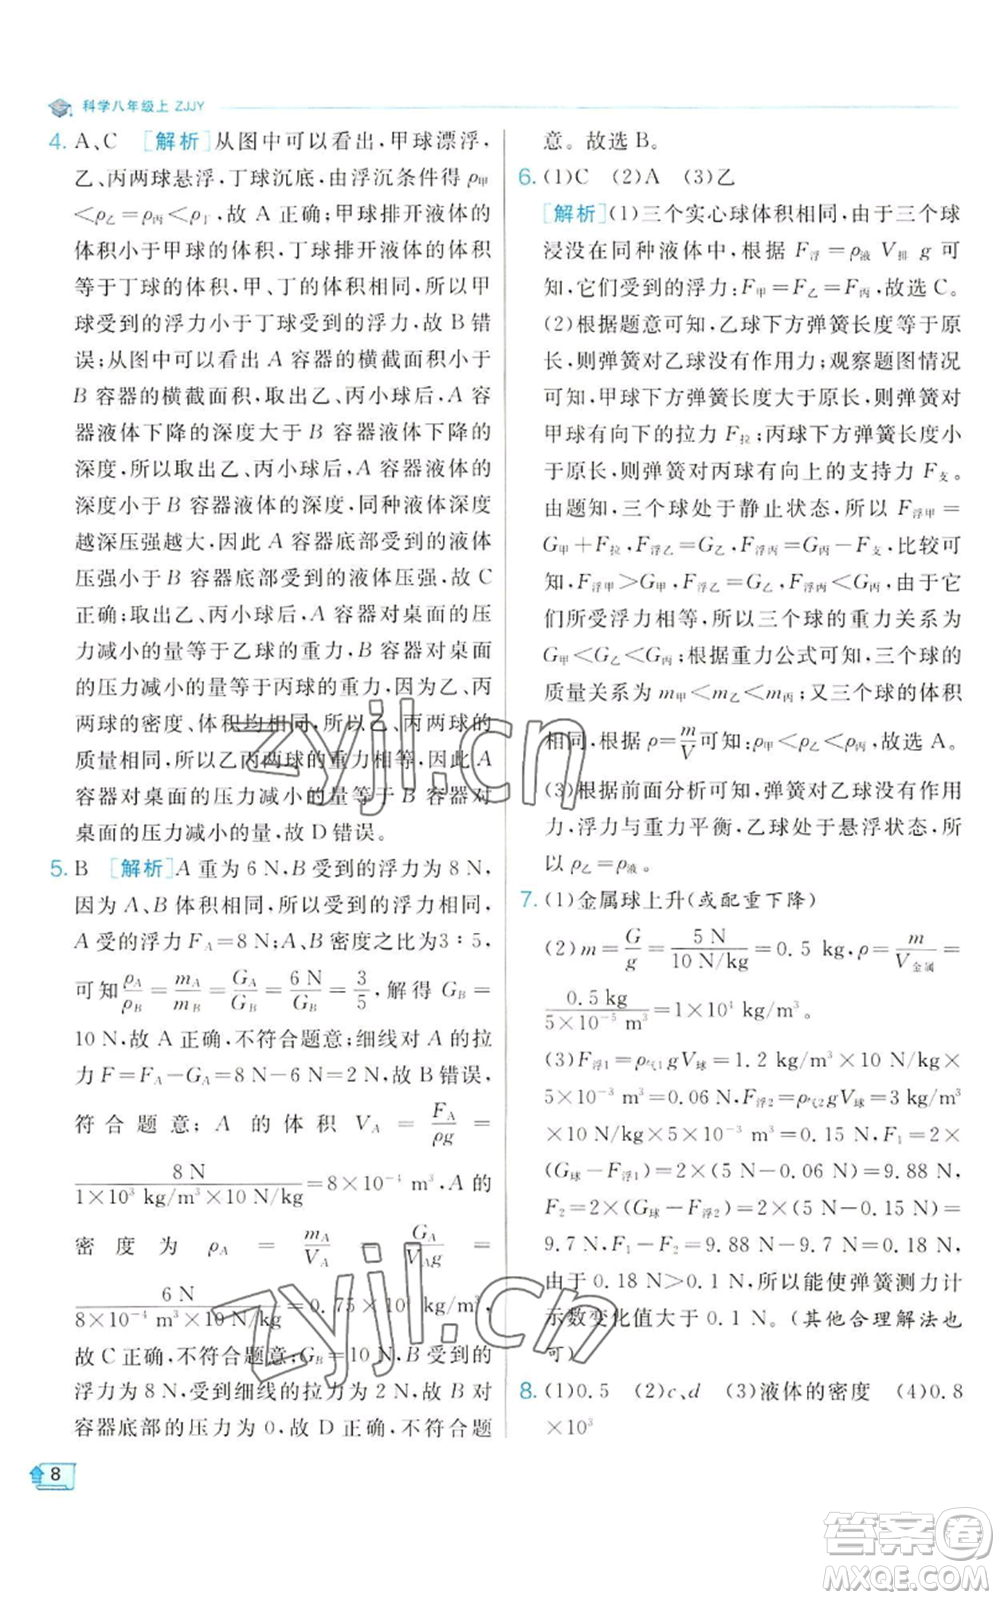 科学八年级上 ZJJY
4. A、C [解析]从图中可以看出，甲球漂浮，
乙、丙两球悬浮，丁球沉底，由浮沉条件得 ρ甲
<ρ乙=ρ丙<ρ丁，故 A 正确；甲球排开液体的
体积小于甲球的体积，丁球排开液体的体积
等于丁球的体积，甲、丁的体积相同，所以甲
球受到的浮力小于丁球受到的浮力，故 B 错
误；从图中可以看出 A 容器的横截面积小于
B 容器的横截面积，取出乙、丙小球后，A 容
器液体下降的深度大于 B 容器液体下降的
深度，所以取出乙、丙小球后，A 容器液体的
深度小于 B 容器液体的深度，同种液体深度
越深压强越大，因此 A 容器底部受到的液体
压强小于 B 容器底部受到的液体压强，故 C
正确；取出乙、丙小球后，A 容器对桌面的压
力减小的量等于乙球的重力，B 容器对桌面
的压力减小的量等于丙球的重力，因为乙、丙
两球的密度、体积均相同，所以乙、丙两球的
质量相同，所以乙丙两球的重力相等，因此 A
容器对桌面的压力减小的量等于 B 容器对
桌面的压力减小的量，故 D 错误。
5. B [解析]A 重为 6 N，B 受到的浮力为 8 N，
因为 A、B 体积相同，所以受到的浮力相同，
A 受的浮力 FA=8 N；A、B 密度之比为3∶5，
可知 ρA/ρB = mA/mB = GA/GB = 6 N/GB = 3/5，解得 GB =
10 N，故 A 正确，不符合题意；细线对 A 的拉
力 F=FA−GA=8 N−6 N=2 N，故 B 错误，
符合题意；A 的体积 VA = FA/ρg =
8 N/(1×10³ kg/m³×10 N/kg)=8×10⁻⁴ m³，A 的
密度为 ρA = mA/VA = GA/VAg =
6 N/(8×10⁻⁴ m³×10 N/kg)=0.75×10³ kg/m³，
故 C 正确，不符合题意；GB=10 N，B 受到的
浮力为 8 N，受到细线的拉力为 2 N，故 B 对
容器底部的压力为 0，故 D 正确，不符合题
意。故选 B。
6. (1)C (2)A (3)乙
[解析](1)三个实心球体积相同，由于三个球
浸没在同种液体中，根据 F浮=ρ液 V排 g 可
知，它们受到的浮力：F甲=F乙=F丙，故选 C。
(2)根据题意可知，乙球下方弹簧长度等于原
长，则弹簧对乙球没有作用力；观察题图情况
可知，甲球下方弹簧长度大于原长，则弹簧对
甲球有向下的拉力 F拉；丙球下方弹簧长度小
于原长，则弹簧对丙球有向上的支持力 F支。
由题知，三个球处于静止状态，所以 F浮甲=
G甲+F拉，F浮乙=G乙，F浮丙=G丙−F支，比较可
知，F浮甲>G甲，F浮乙=G乙，F浮丙<G丙，由于
浮力相等，所以三个球的重力关系为
G甲<G乙<G丙；根据重力公式可知，三个球的
质量关系为 m甲<m乙<m丙；又三个球的体积
相同，根据 ρ=m/V 可知：ρ甲<ρ乙<ρ丙，故选 A。
(3)根据前面分析可知，弹簧对乙球没有作用
力，浮力与重力平衡，乙球处于悬浮状态，所
以 ρ乙=ρ液。
7. (1)金属球上升(或配重下降)
(2) m=G/g=5 N/(10 N/kg)=0.5 kg，ρ=m/V金属=
0.5 kg/(5×10⁻⁵ m³)=1×10⁴ kg/m³。
(3)F浮1=ρ气1gV球=1.2 kg/m³×10 N/kg×
5×10⁻³ m³=0.06 N，F浮2=ρ气2gV球=3 kg/m³
×10 N/kg×5×10⁻³ m³=0.15 N，F1=2×
(G球−F浮1)=2×(5 N−0.06 N)=9.88 N，
F2=2×(G球−F浮2)=2×(5 N−0.15 N)=
9.7 N，F1−F2=9.88 N−9.7 N=0.18 N，
由于 0.18 N>0.1 N，所以能使弹簧测力计
示数变化值大于 0.1 N。(其他合理解法也
可)
8. (1)0.5 (2)c、d (3)液体的密度 (4)0.8
×10³
8
zyjl.cn
zyjl.cn
答案圈
MXQE.COM